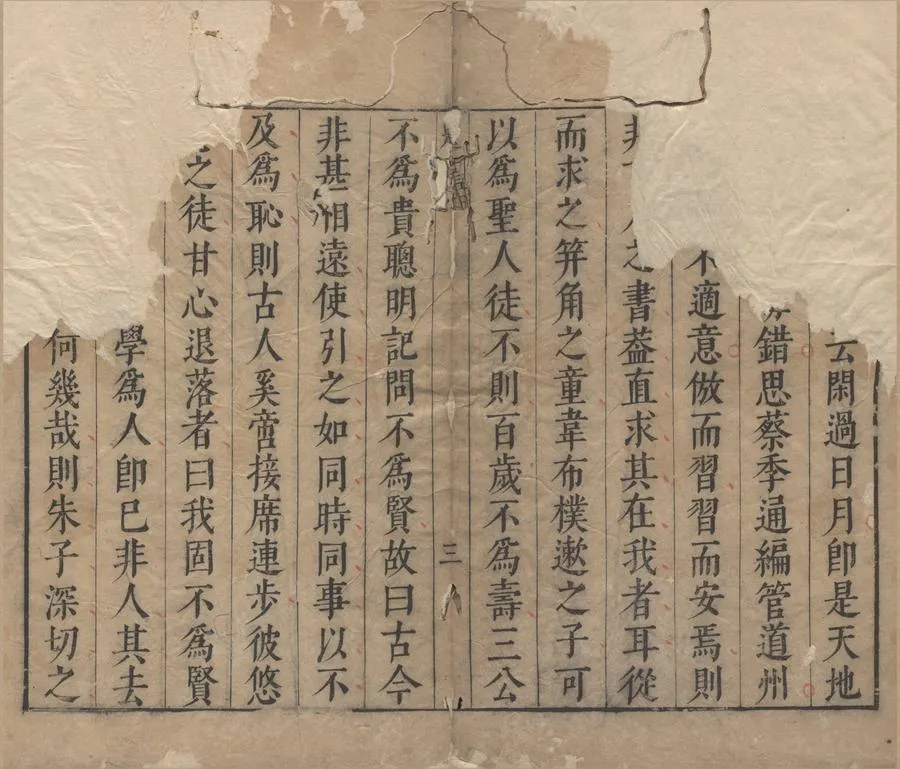 云閑過日月卽是天地
錯思蔡季通編管道州
不適意倣而習習而安焉則
之書葢直求其在我者耳從
而求之笄角之童韋布樸遬之子可
以爲聖人徒不則百歲不爲壽三公
三
不爲貴聰明記問不爲賢故曰古今
非甚相遠使引之如同時同事以不
及爲恥則古人奚啻接席連步彼悠
之徒甘心退落者曰我固不爲賢
學爲人卽已非人其去
何幾哉則朱子深切之